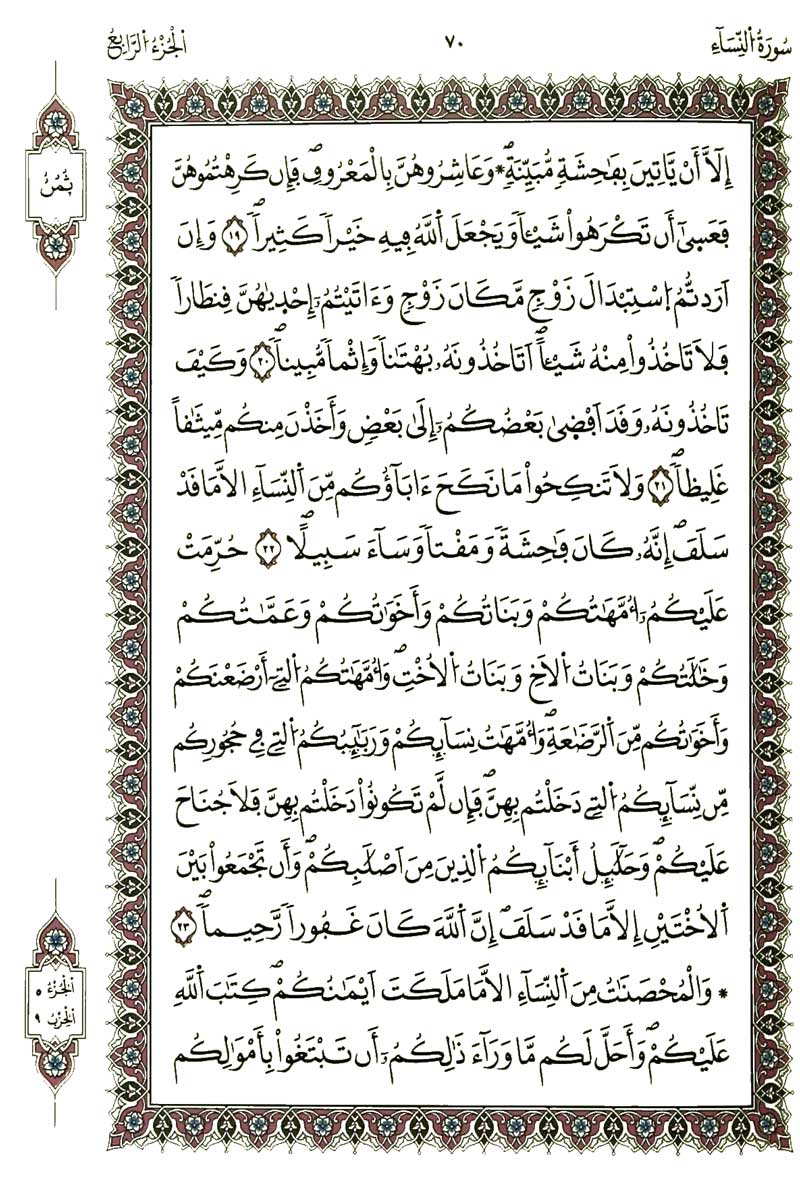 سُورَةُ اُلنِّسَآءِ
٧٠
اَلْجُزْءُ اُلرَّابِعُ
إِلَّآ أَنْ يَّاتِينَ بِفَٰحِشَةٖ مُّبَيِّنَةٖۖ * وَعَاشِرُوهُنَّ بِالْمَعْرُوفِۖ فَإِن كَرِهْتُمُوهُنَّ
فَعَس۪يٰٓ أَن تَكْرَهُواْ شَيْـٔاٗ وَيَجْعَلَ اَ۬للَّهُ فِيهِ خَيْراٗ كَثِيراٗۖ ١٩ وَإِنَ
اَرَدتُّمُ اُ۪سْتِبْدَالَ زَوْجٖ مَّكَانَ زَوْجٖ وَءَاتَيْتُمُۥٓ إِحْد۪يٰهُنَّ قِنطَاراٗ
فَلَا تَاخُذُواْ مِنْهُ شَيْـٔاًۖ اَتَاخُذُونَهُۥ بُهْتَٰناٗ وَإِثْماٗ مُّبِيناٗۖ ٢٠ وَكَيْفَ
تَاخُذُونَهُۥ وَقَدَ اَفْض۪يٰ بَعْضُكُمُۥٓ إِلَىٰ بَعْضٖ وَأَخَذْنَ مِنكُم مِّيثَٰقاً
غَلِيظاٗۖ ٢١ وَلَا تَنكِحُواْ مَا نَكَحَ ءَابَآؤُكُم مِّنَ اَ۬لنِّسَآءِ الَّا مَا قَدْ
سَلَفَۖ إِنَّهُۥ كَانَ فَٰحِشَةٗ وَمَقْتاٗ وَسَآءَ سَبِيلًاۖ ٢٢ حُرِّمَتْ
عَلَيْكُمُۥٓ أُمَّهَٰتُكُمْ وَبَنَاتُكُمْ وَأَخَوَٰتُكُمْ وَعَمَّٰتُكُمْ
وَخَٰلَٰتُكُمْ وَبَنَاتُ اُ۬لَاخِ وَبَنَاتُ اُ۬لُاخْتِۖ وَأُمَّهَٰتُكُمُ اُ۬لتِےٓ أَرْضَعْنَكُمْ
وَأَخَوَٰتُكُم مِّنَ اَ۬لرَّضَٰعَةِۖ وَأُمَّهَٰتُ نِسَآئِكُمْ وَرَبَٰٓئِبُكُمُ اُ۬لتِے فِے حُجُورِكُم
مِّن نِّسَآئِكُمُ اُ۬لتِے دَخَلْتُم بِهِنَّۖ فَإِن لَّمْ تَكُونُواْ دَخَلْتُم بِهِنَّ فَلَا جُنَاحَ
عَلَيْكُمْۖ وَحَلَٰٓئِلُ أَبْنَآئِكُمُ اُ۬لذِينَ مِنَ اَصْلَٰبِكُمْۖ وَأَن تَجْمَعُواْ بَيْنَ
اَ۬لُاخْتَيْنِ إِلَّا مَا قَدْ سَلَفَۖ إِنَّ اَ۬للَّهَ كَانَ غَفُوراٗ رَّحِيماٗۖ ٢٣
* وَالْمُحْصَنَٰتُ مِنَ اَ۬لنِّسَآءِ الَّا مَا مَلَكَتَ اَيْمَٰنُكُمْۖ كِتَٰبَ اَ۬للَّهِ
عَلَيْكُمْۖ وَأَحَلَّ لَكُم مَّا وَرَآءَ ذَٰلِكُمُۥٓ أَن تَبْتَغُواْ بِأَمْوَٰلِكُم
ثُمُنُ
اَلْجُزْءُ ٥
اَلْحِزْبُ ٩